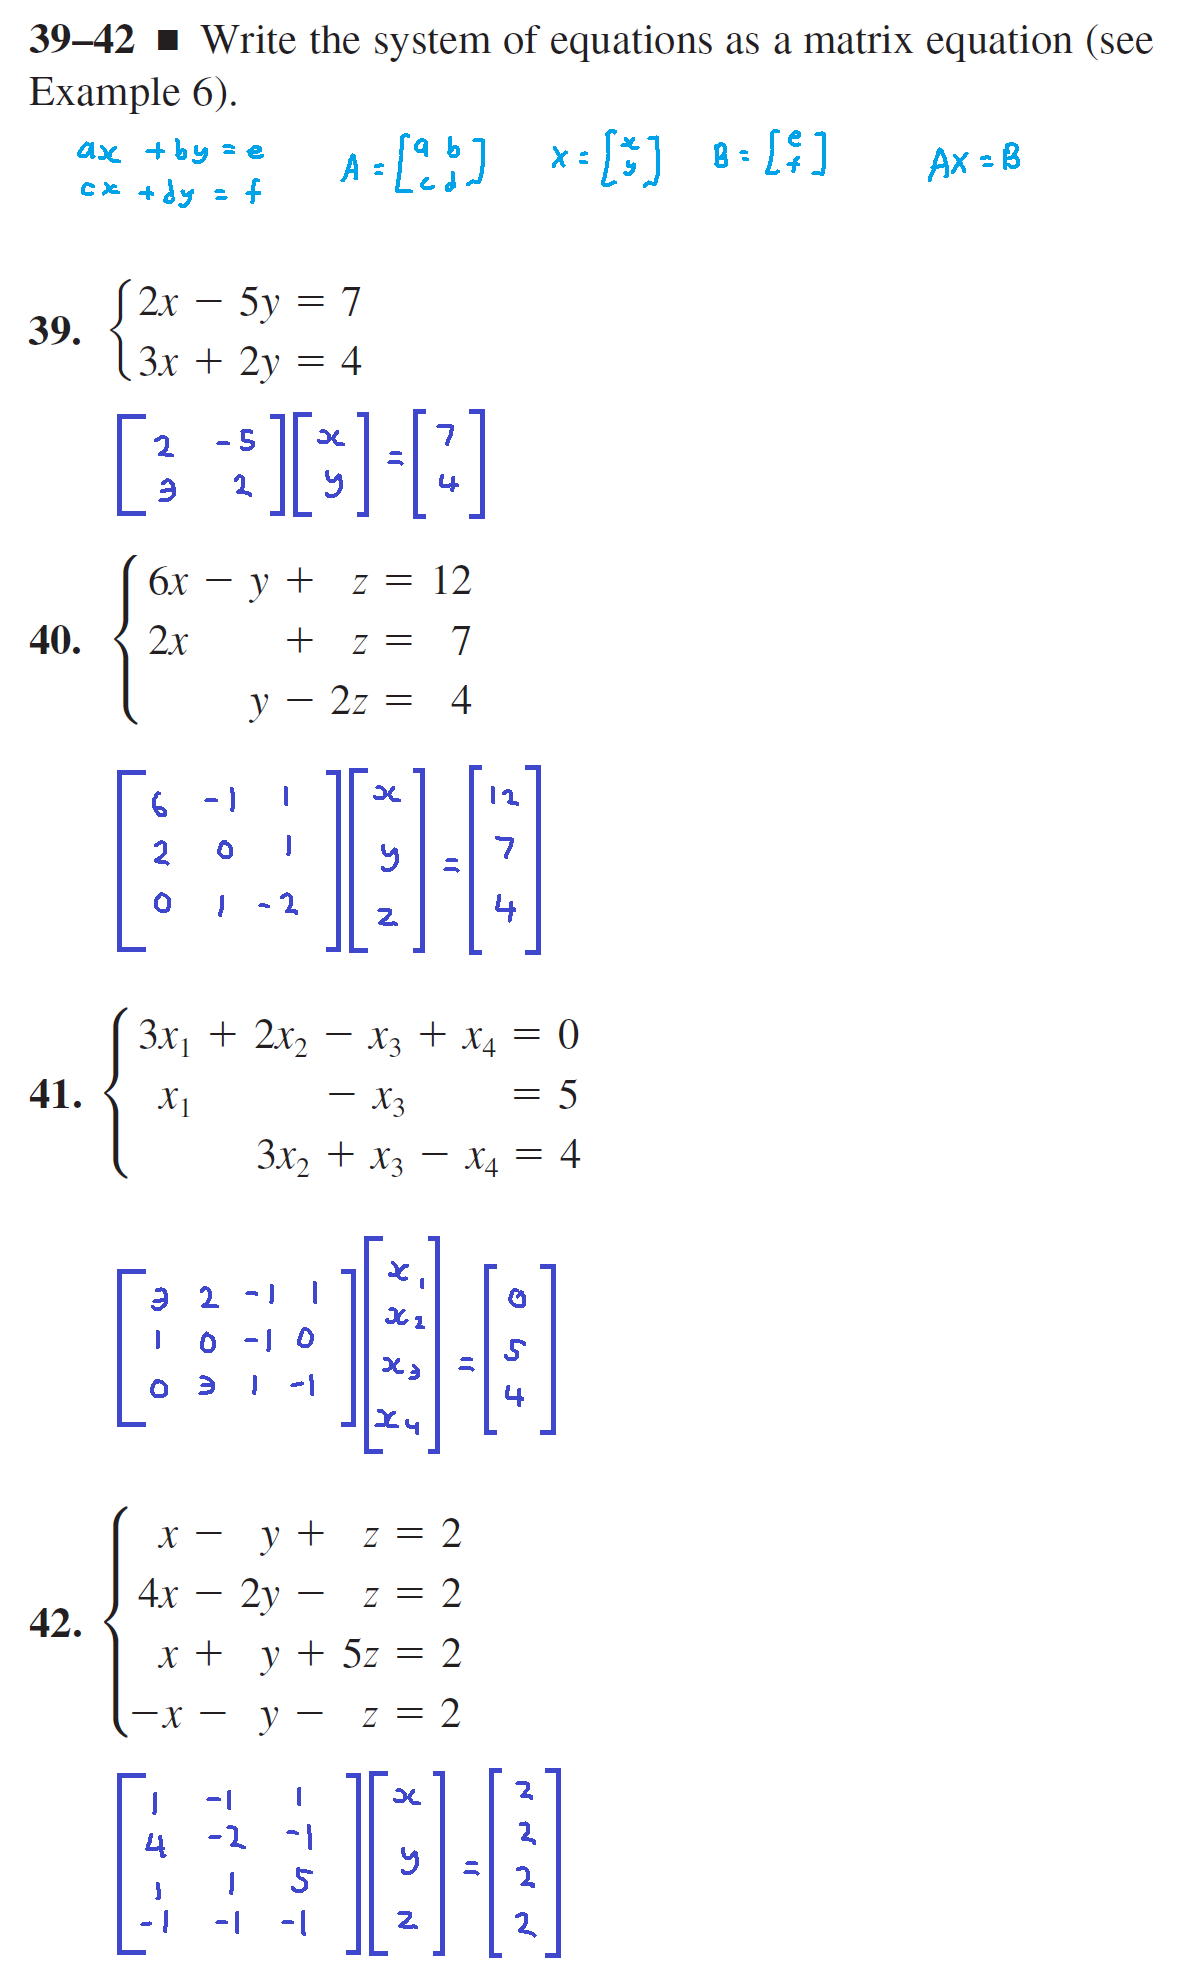 39–42 ■ Write the system of equations as a matrix equation (see
Example 6).
ax + by = e
cx + dy = f
A = [a b
c d]
x = [x
y]
B = [e
f]
AX = B
39.
2x − 5y = 7
3x + 2y = 4
[2 -5] [x] = [7]
[3 2] [y] [4]
40.
6x − y + z = 12
2x + z = 7
y − 2z = 4
[6 -1 1] [x] [12]
[2 0 1] [y] = [7]
[0 1 -2] [z] [4]
41.
3x₁ + 2x₂ − x₃ + x₄ = 0
x₁ − x₃ = 5
3x₂ + x₃ − x₄ = 4
[3 2 -1 1] [x₁] [0]
[1 0 -1 0] [x₂] [5]
[0 3 1 -1] [x₃] = [4]
[x₄]
42.
x − y + z = 2
4x − 2y − z = 2
x + y + 5z = 2
−x − y − z = 2
[1 -1 1] [x] [2]
[4 -2 -1] [y] [2]
[1 1 5] = [2]
[-1 -1 -1] [z] [2]